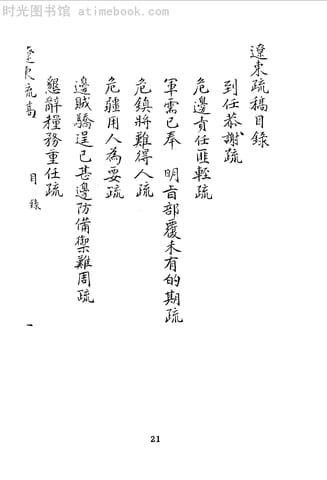 时光图书馆 · atimebook.com
遼東疏稿目錄
到任恭謝疏
危邊責任匪輕疏
軍需已奉 明旨部覆未有的期疏
危鎮將難得人疏
危疆用人為要疏
邊賊驕逞已甚邊防備禦難周疏
懇辭糧務重任疏
遼東疏稿 目錄 一
21